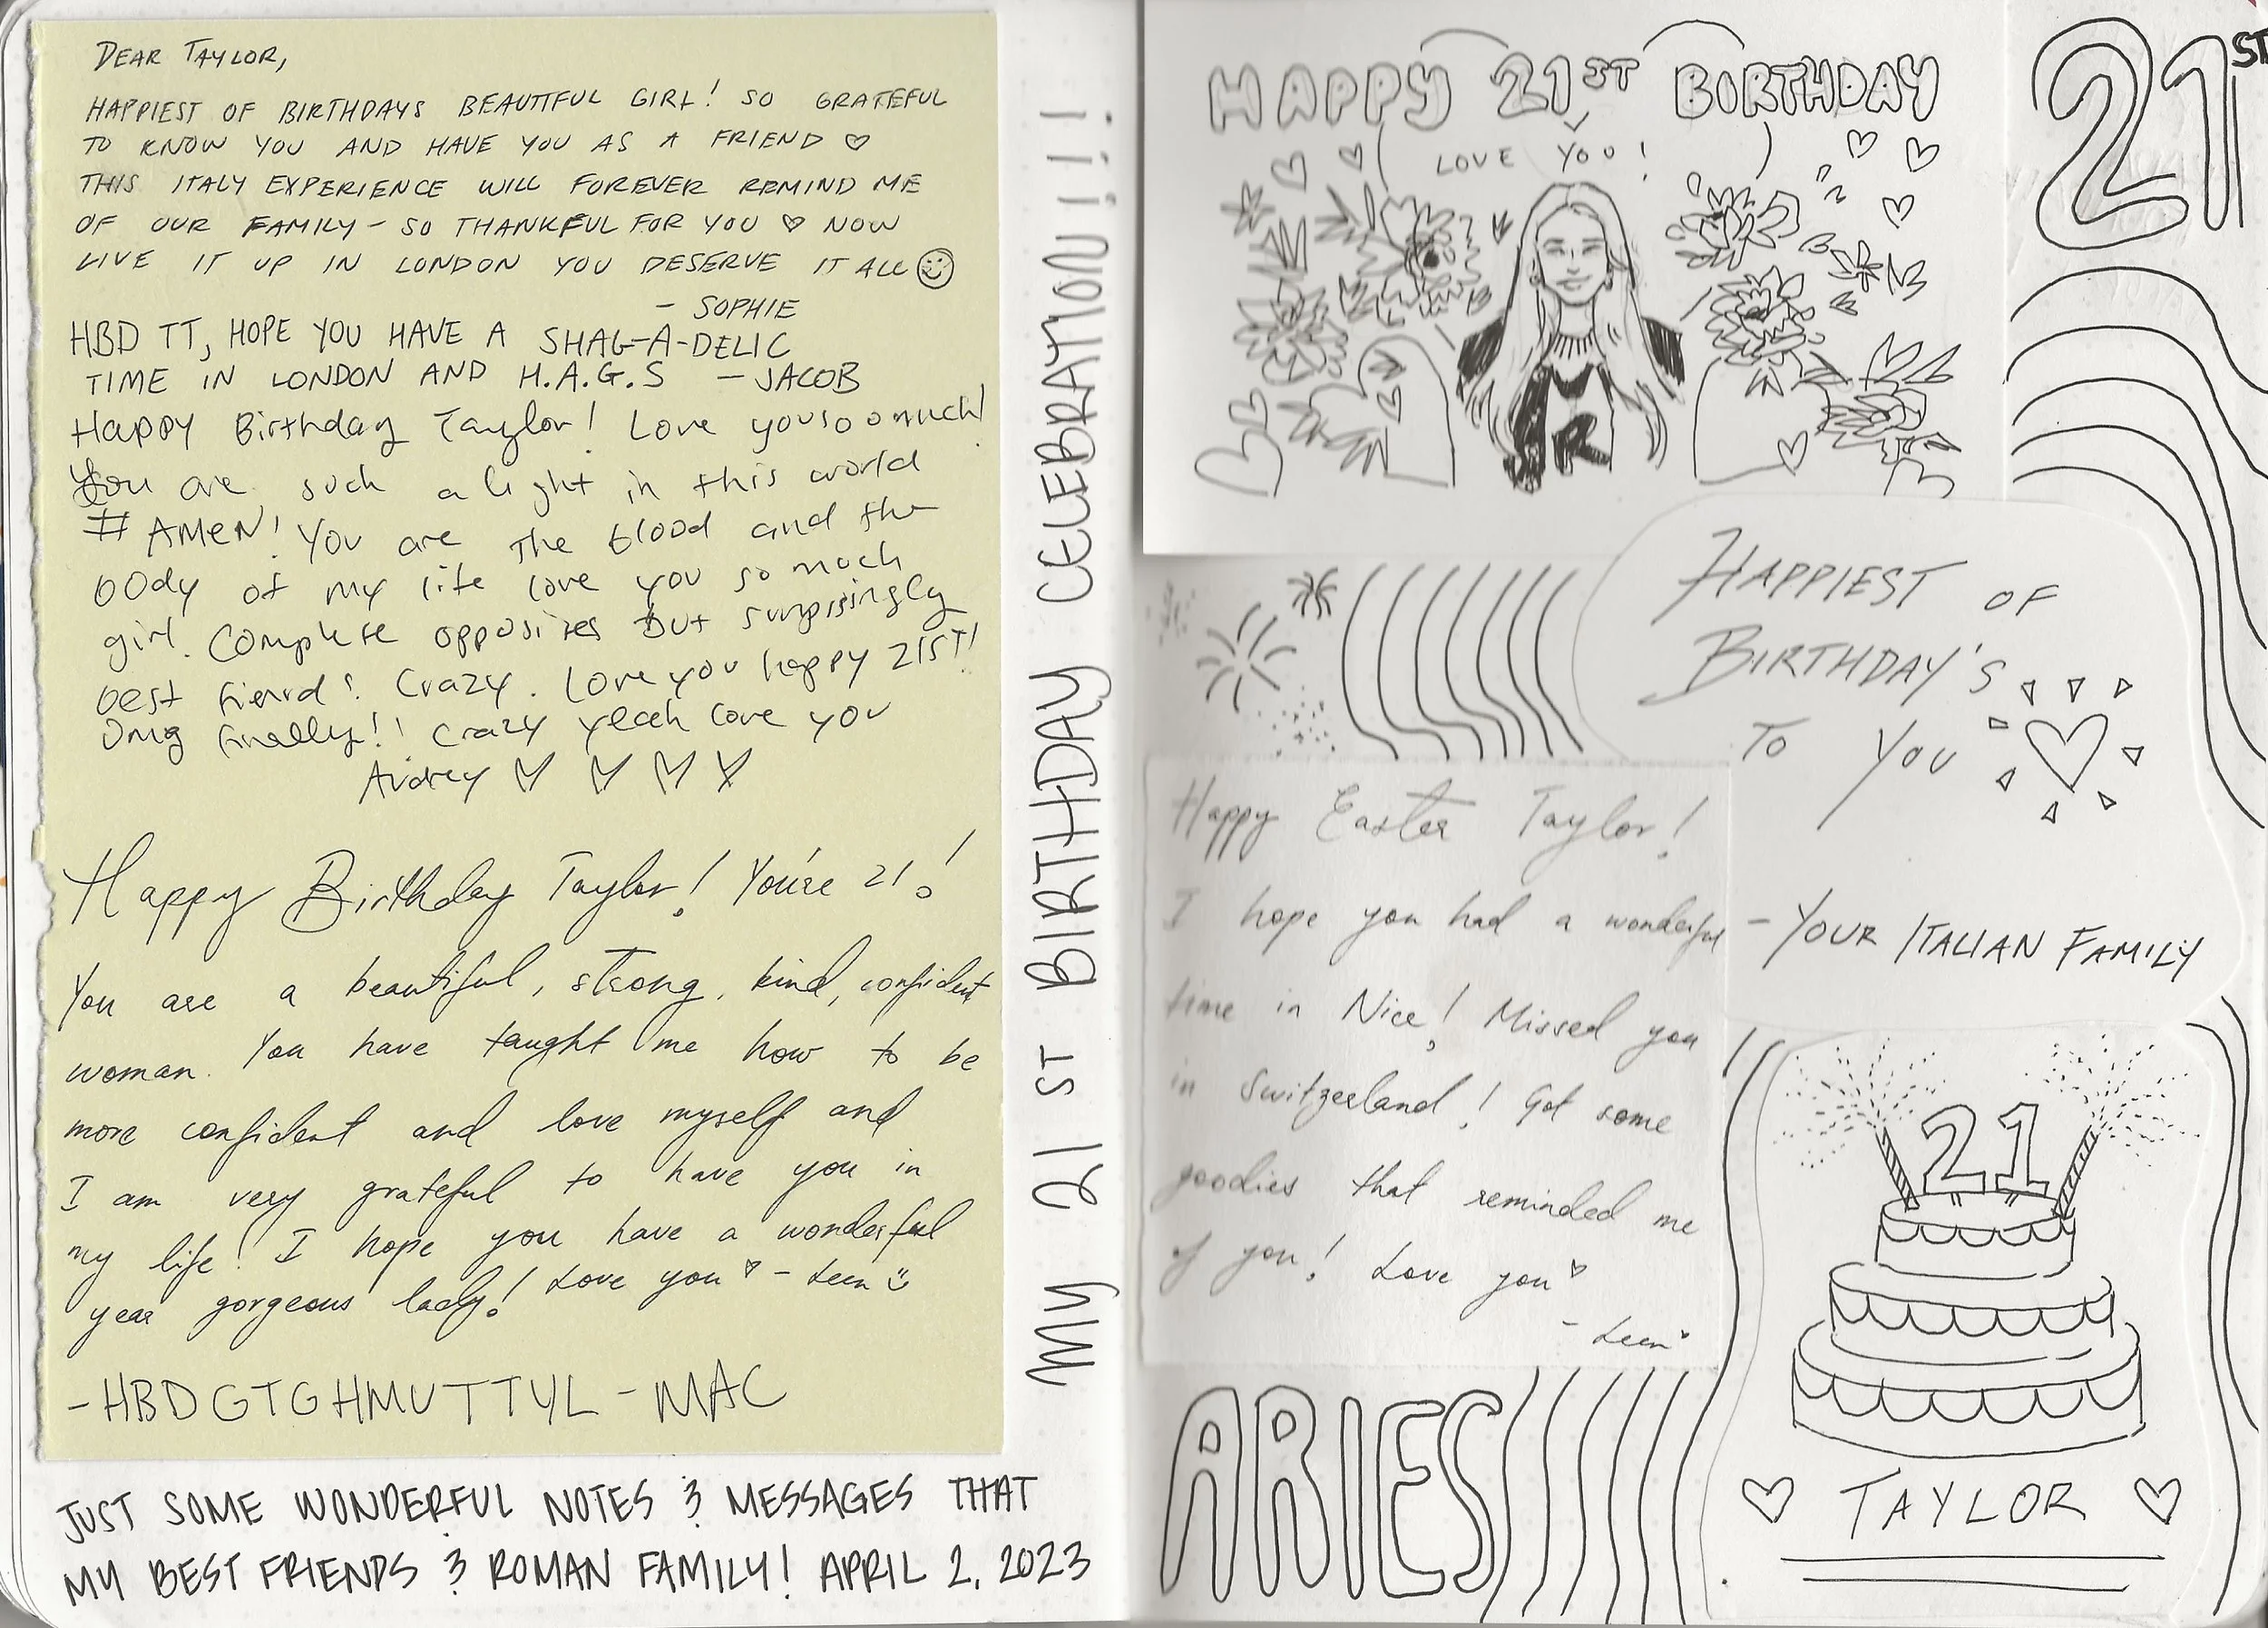 DEAR TAYLOR,
HAPPIEST OF BIRTHDAYS BEAUTIFUL GIRL! SO GRATEFUL
TO KNOW YOU AND HAVE YOU AS A FRIEND ♡
THIS ITALY EXPERIENCE WILL FOREVER REMIND ME
OF OUR FAMILY - SO THANKFUL FOR YOU ♡ NOW
LIVE IT UP IN LONDON YOU DESERVE IT ALL ☺
- SOPHIE
HBD TT, HOPE YOU HAVE A SHAG-A-DELIC
TIME IN LONDON AND H.A.G.S - JACOB
Happy Birthday Taylor! Love you soo much!
You are such a light in this world
# AMEN! You are the blood and the
body of my life love you so much
girl. Complete opposites but surprisingly
best fienrd? Crazy. Love you happy 21ST!
Omg finally!! Crazy yeah love you
Audrey ♡ ♡ ♡ ♡
Happy Birthday Taylor! You're 21!
You are a beautiful, strong, kind, confident
woman. You have taught me how to be
more confident and love myself and
I am very grateful to have you in
my life! I hope you have a wonderful
year gorgeous lady! Love you ♡ - Leen ☺
- HBDGTGHMUTTYL - MAC
JUST SOME WONDERFUL NOTES & MESSAGES THAT
MY BEST FRIENDS & ROMAN FAMILY! APRIL 2, 2023
MY 21 ST BIRTHDAY CELEBRATION!!!!
HAPPY 21ST BIRTHDAY
LOVE YOU!
R
21ST
HAPPIEST OF
BIRTHDAY'S
TO YOU ♡
- YOUR ITALIAN FAMILY
Happy Easter Taylor!
I hope you had a wonderful
time in Nice! Missed you
in Switzerland! Got some
goodies that reminded me
of you! Love you ♡
- Leen ♡
ARIES
21
♡ TAYLOR ♡